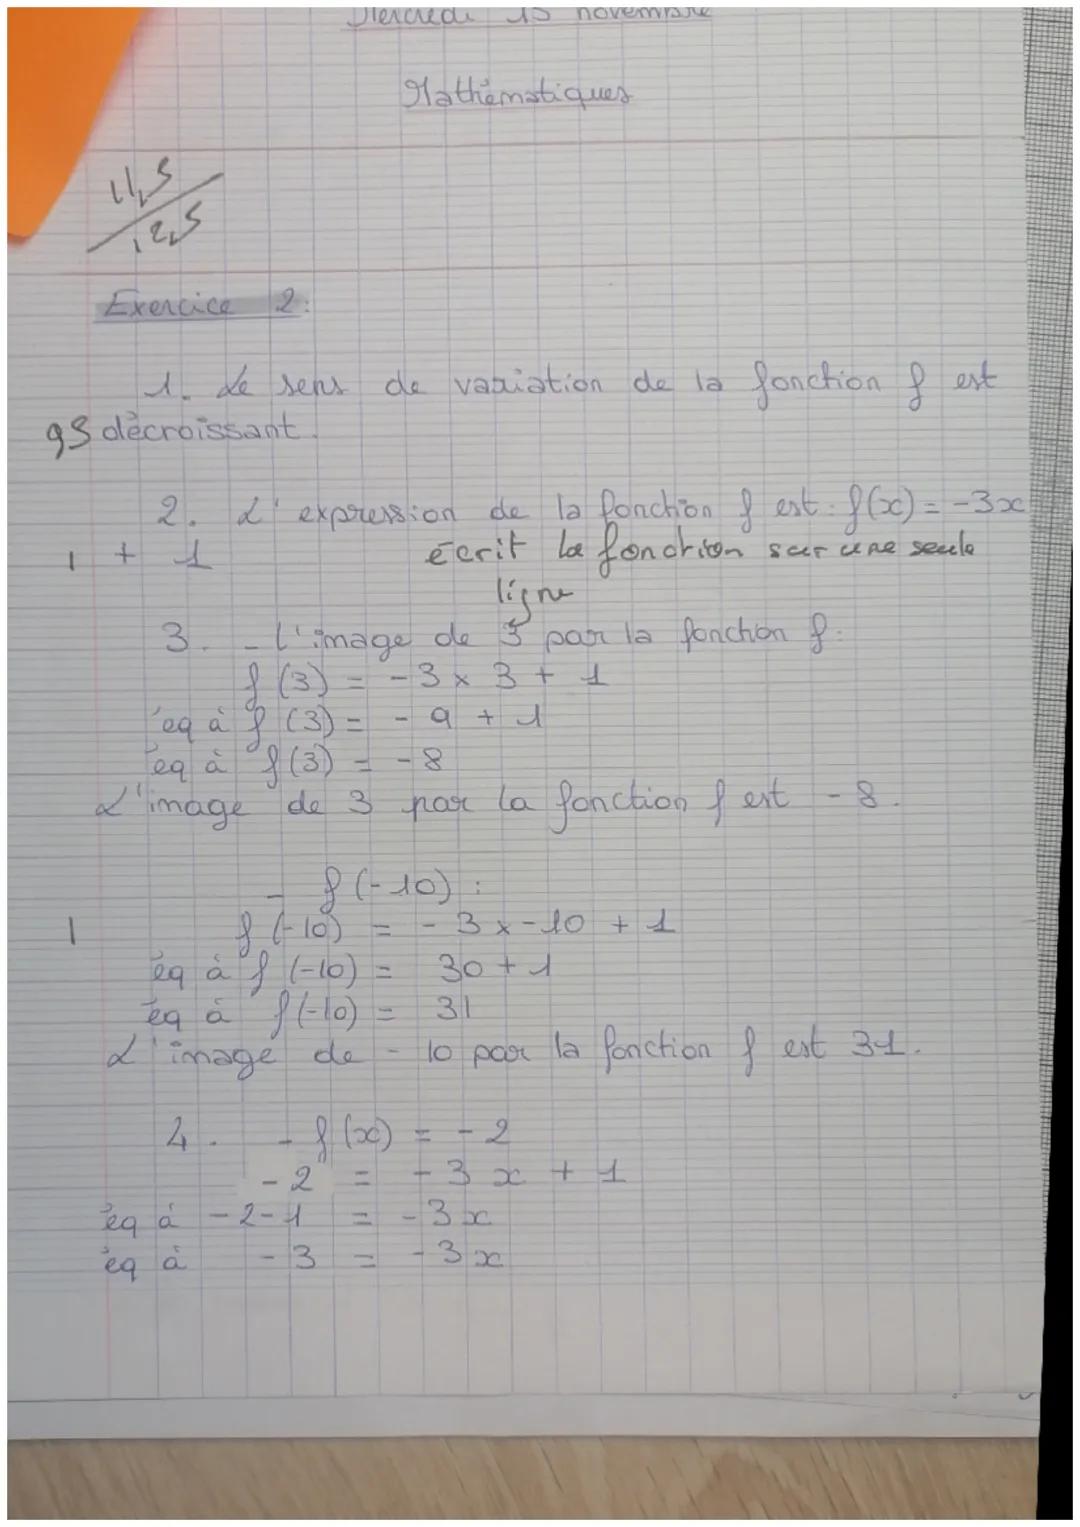 Mercredi 15 novembre
Mathématiques
11,5
12,5
Exercice 2:
1. Le sens de variation de la fonction f est
0,5 décroissant.
2. L'expression de la fonction f est : f(x) = -3x
1 + 1 écrit la fonction sur une seule
ligne
3. - L'image de 3 par la fonction f:
f(3) = -3 x 3 + 1
éq à f(3) = -9 + 1
éq à f(3) = -8
L'image de 3 par la fonction f est -8.
- f(-10) :
1 f(-10) = -3 x -10 + 1
éq à f(-10) = 30 + 1
éq à f(-10) = 31
L'image de -10 par la fonction f est 31.
4. - f(x) = -2
-2 = -3x + 1
éq à -2-1 = -3x
éq à -3 = -3x